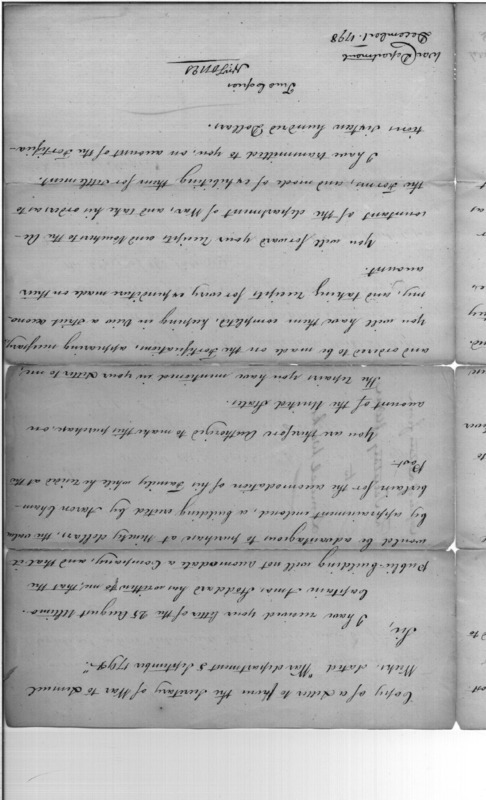 Copy of a Letter to from the Secretary of War to Lemuel
Weeks. dated "War department 3 September 1794".
Sir,
I have received your letter of the 25 August Ultimo.
Captain Amos Stoddard has written to me, that the
Public building will not accomodate a Company, and that it
would be advantagious to purchase at thirty dollars, the value
by appraisement enclosed, a building erected by Aaron Cham-
berlain for the accomodation of his Family while he resided at the
Post.
You are therefore Authorized to make this purchase. on
account of the United States.
The repairs you have mentioned in your Letter to me,
and ordered to be made on the Fortification, appearing necessary,
you will have them completed, keeping in view a strict econo-
my, and taking receipts for every expenditure made on this
account.
You will forward your receipts and vouchers to the Ac-
countant of the department of War, and take his orders as to
the Forms, and mode of exhibiting them for settlement.
I have transmitted to you, on account of the Fortifica-
tions sixteen hundred Dollars.
True Copies
Wm Jones
War Department
December 1. 1798